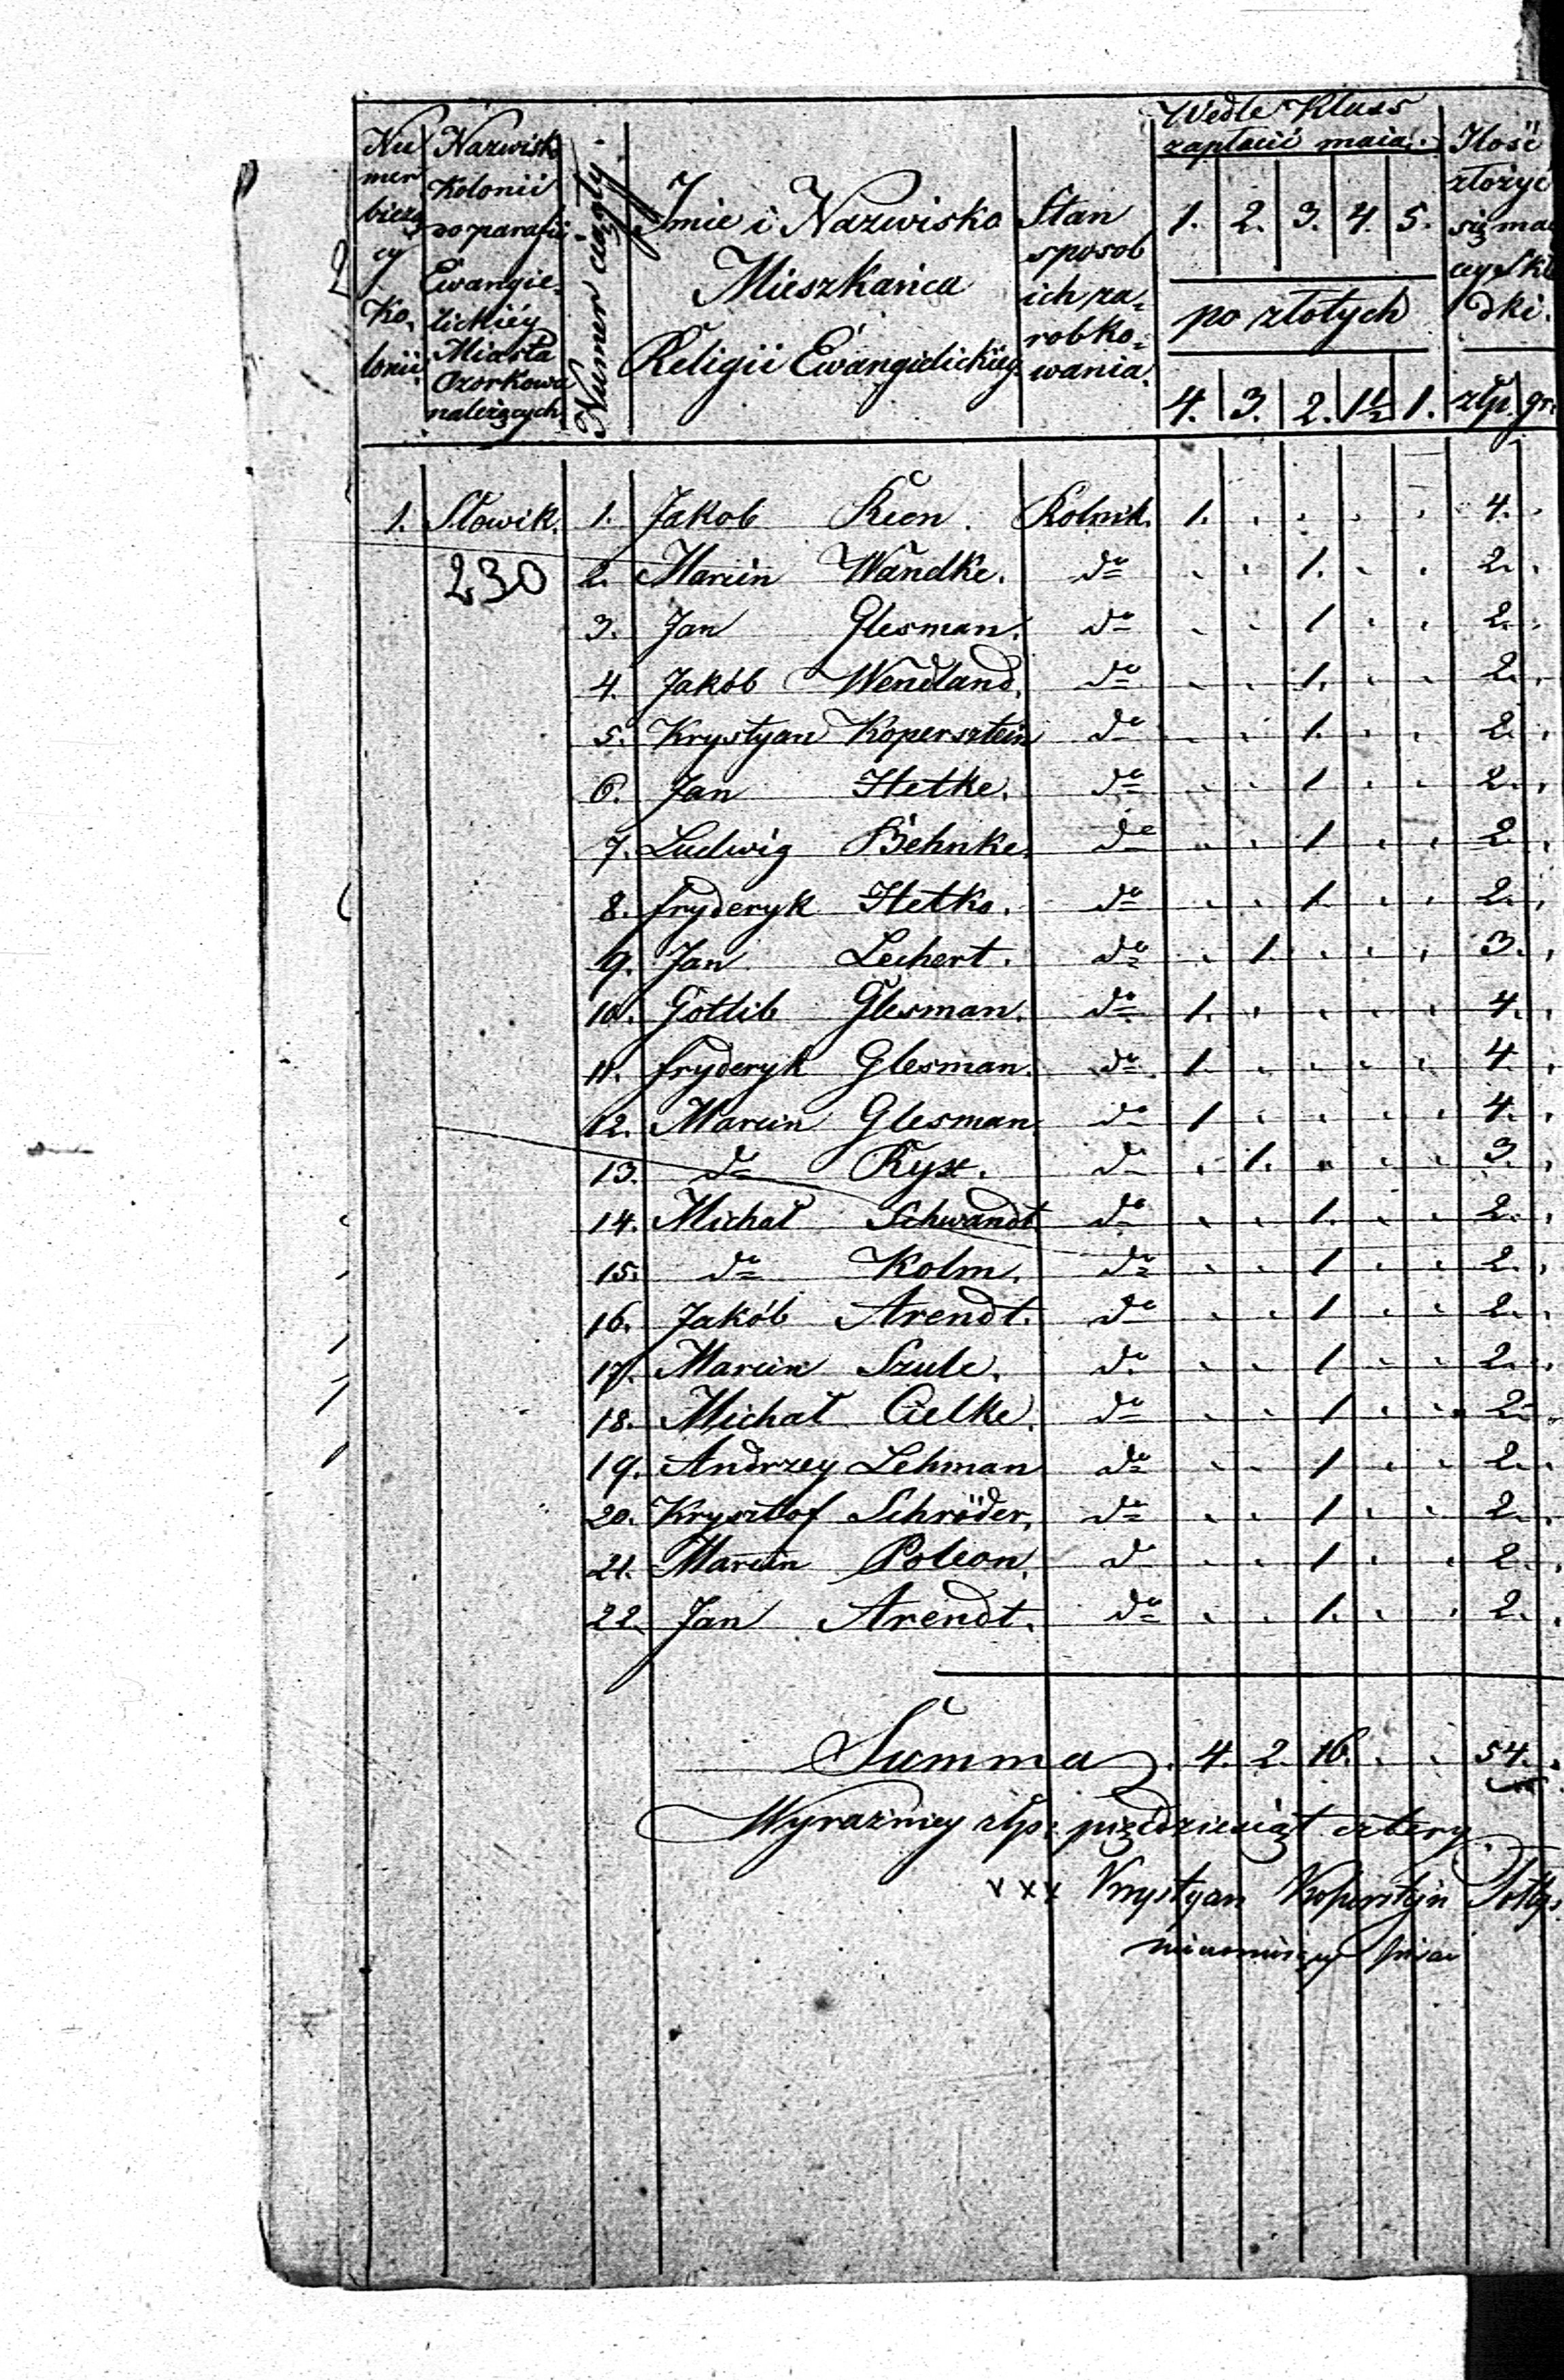 Numer bieżący Kolonii
Nazwisko Kolonii do parafii Ewangielickiéy Miasta Ozorkowa należących
Numer ciągły
Imie i Nazwisko Mieszkańca Religii Ewangielickiéy
Stan sposob ich zarobkowania.
Wedle Klass zapłacić maią.
1. 2. 3. 4. 5.
po złotych
4. 3. 2. 1½ 1.
Ilość złożyć się maiącey Skłdki.
złp. gr.
1. Słowik. 1. Jakob Kron. Rolnik. 1. 4.
230 2. Marcin Wandke. do 1. 2.
3. Jan Glesman. do 1 2.
4. Jakób Wendland. do 1. 2.
5. Krystyan Kopersztein do 1. 2.
6. Jan Hetke. do 1 2.
7. Ludwig Behnke. do 1 2.
8. fryderyk Hetke. do 1. 2.
9. Jan Lechert. do 1. 3.
10. Gotlib Glesman. do 1. 4.
11. fryderyk Glesman. do 1. 4.
12. Marcin Glesman. do 1 4.
13. do Ryx. do 1. 3.
14. Michał Schwandt do 1. 2.
15. do Kolm. do 1 2.
16. Jakób Arendt. do 1 2.
17. Marcin Szulc. do 1 2.
18. Michał Cielke. do 1 2.
19. Andrzey Lehman do 1 2.
20. Krysztof Schröder, do 1 2.
21. Marcin do 1 2.
22. Jan Arendt. do 1. 2.
Summa 4. 2. 16. 54.
Wyraźniey złp: pięćdziesiąt cztery.
xxx Krystyan Kopersztejn Sołtys
nieumieiący pisać